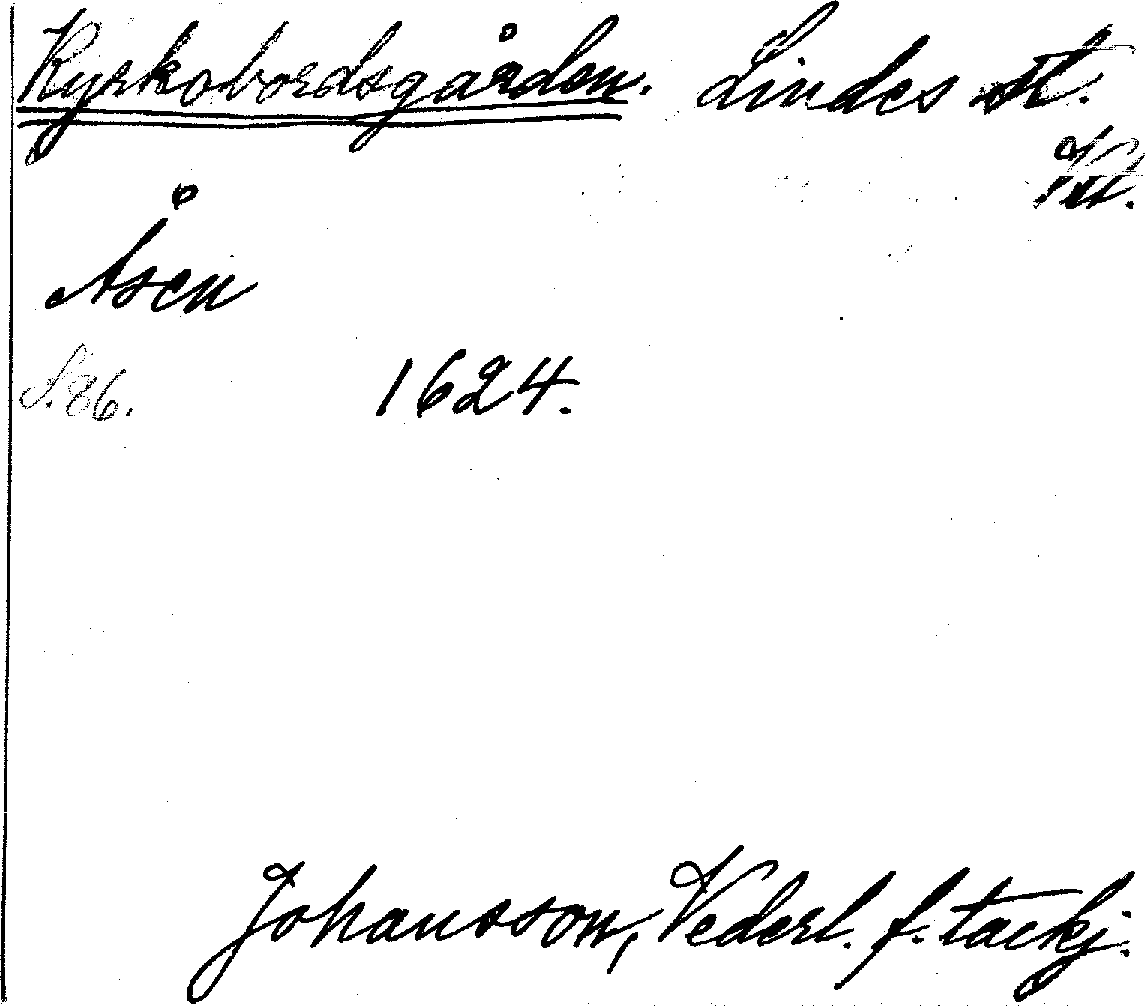 Kyrkobordsgården. Lindes st.
Vstl.
Åsen
S. 86. 1624.
Johansson, Vederl. f. tackj.